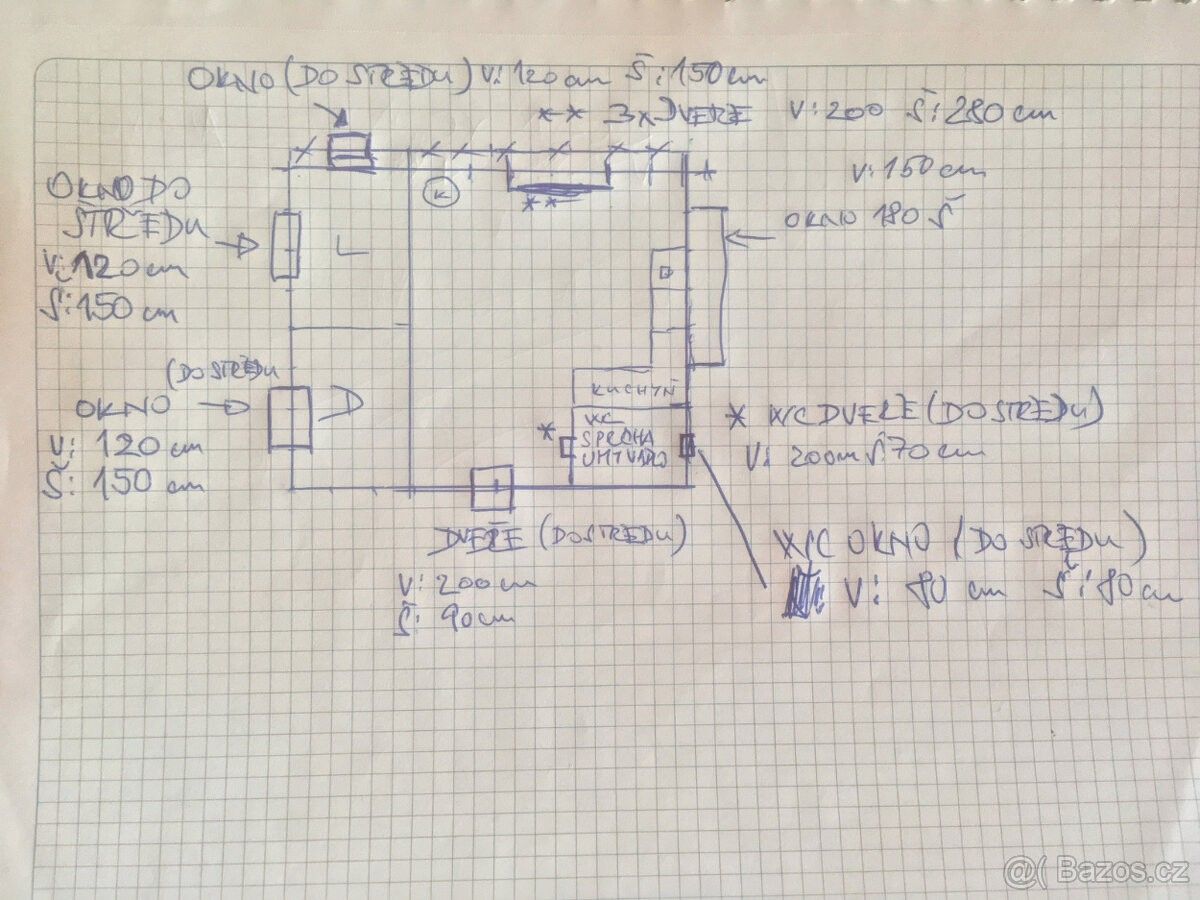 OKNO (DO STŘEDU) V: 120 cm Š: 150 cm
** 3x DVEŘE V: 200 Š: 280 cm
V: 150 cm
OKNO 180 Š
OKNO DO
STŘEDU
V: 120 cm
Š: 150 cm
K
**
L
(DO STŘEDU
OKNO
D
V: 120 cm
Š: 150 cm
KUCHYŇ
WC
SPRCHA
UMYVADLO
*
* WC DVEŘE (DO STŘEDU)
V: 200cm Š: 70 cm
DVEŘE (DO STŘEDU)
V: 200 cm
Š: 90 cm
WC OKNO (DO STŘEDU)
V: 80 cm Š: 80 cm
@( Bazos.cz